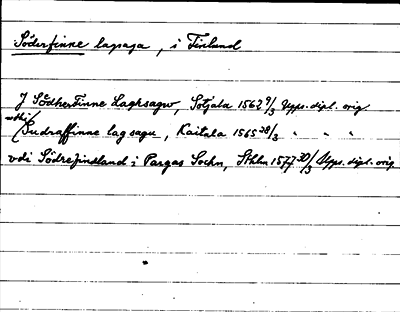 Söderfinne lagsaga, i Finland
J Södherfinne Laghsagw, Sotjala 1562 9/3 Upps. dipl. orig
Sudraffinne lag sagu, Kaitala 1565 28/3 " " "
vdi Södrefindland i Pargas Sochn, Sthlm 1577 30/3 Upps. dipl. orig